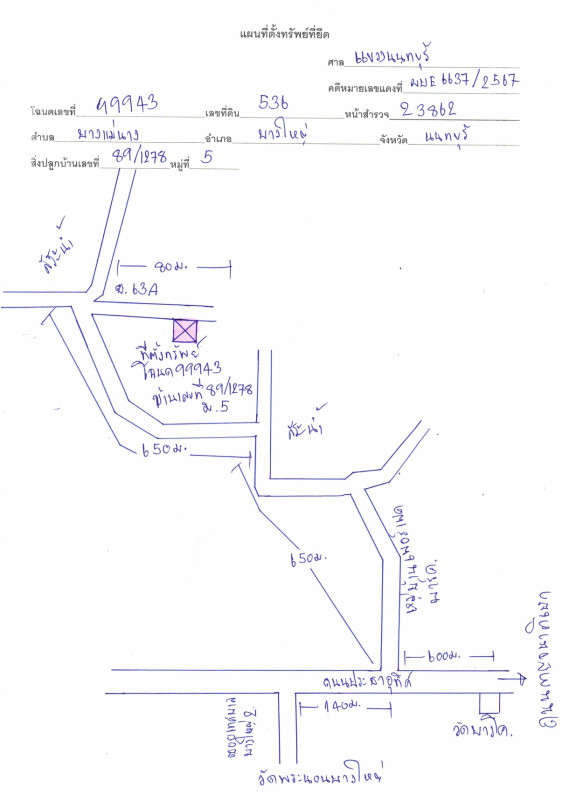 แผนที่ตั้งทรัพย์ที่ยึด
ศาล แขวงนนทบุรี
คดีหมายเลขแดงที่ ผบE 6637/2567
โฉนดเลขที่ 99943 เลขที่ดิน 536 หน้าสำรวจ 23862
ตำบล บางแม่นาง อำเภอ บางใหญ่ จังหวัด นนทบุรี
สิ่งปลูกบ้านเลขที่ 89/1278 หมู่ที่ 5
สระน้ำ
80 ม.
ซ. 63A
ที่ตั้งทรัพย์
โฉนด 99943
บ้านเลขที่ 89/1278
ม. 5
สระน้ำ
650 ม.
650 ม.
600 ม.
ถนนประชาอุทิศ
140 ม.
วัดบางโค.
วัดพระนอนบางใหญ่